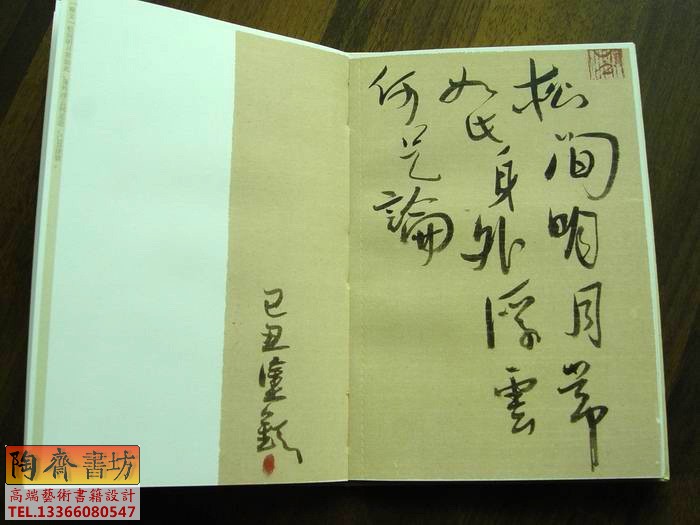 松間明月常
如此身外浮雲
何足論
己丑
陶齋書坊
高端藝術書籍設計
TEL.13366080547